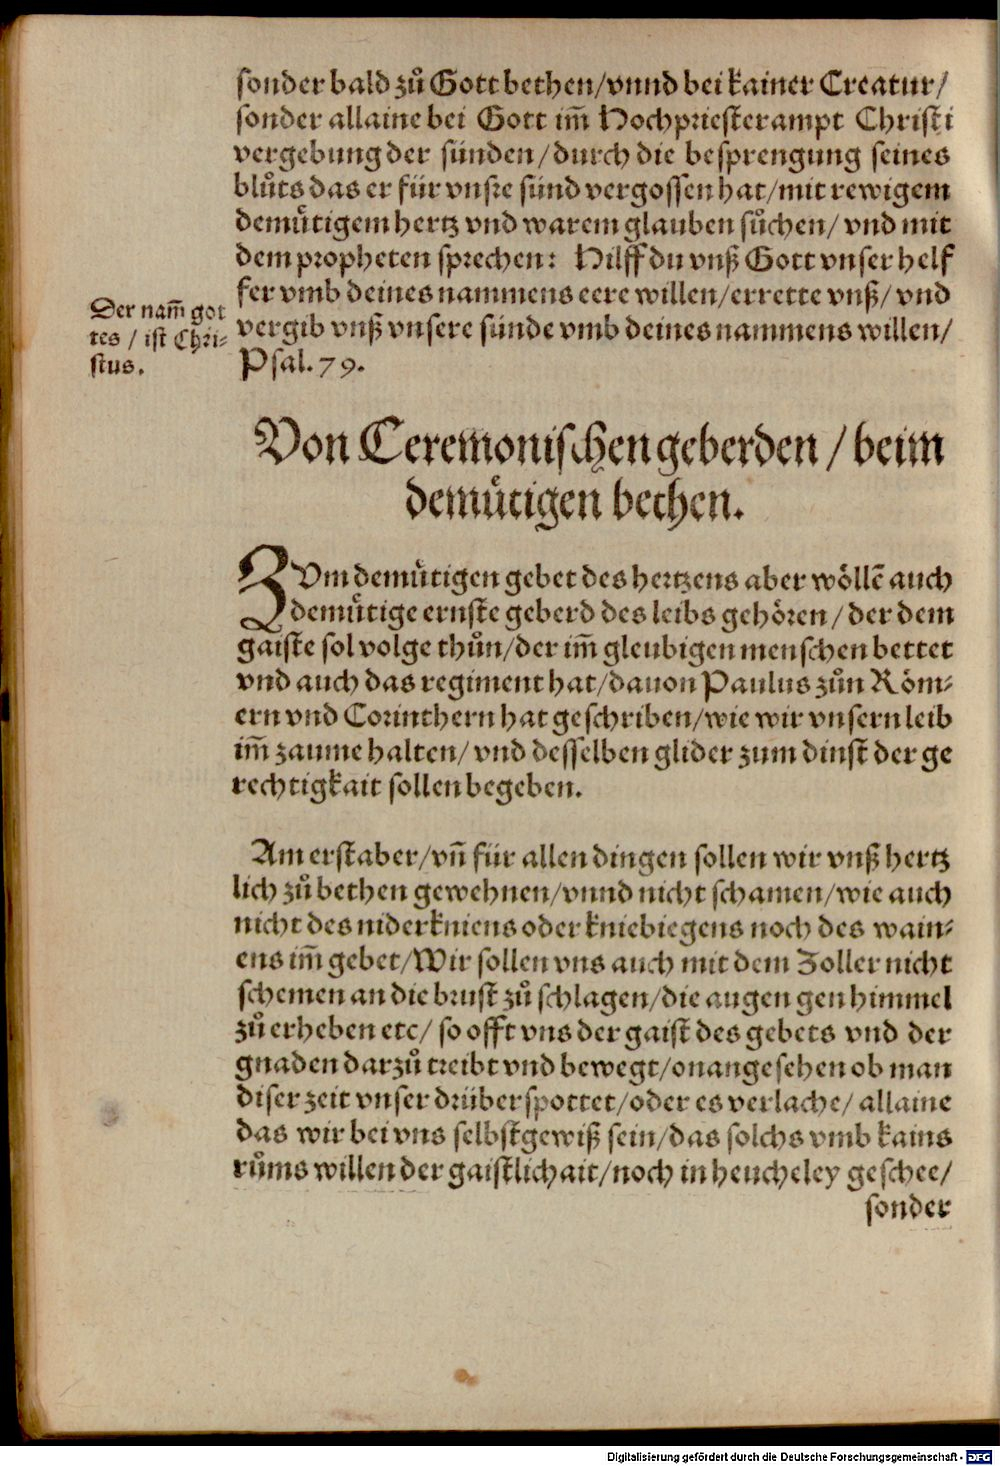 sonder bald zuͦ Gott bethen/vnnd bei kainer Creatur/
sonder allaine bei Gott im̃ Hochpriesterampt Christi
vergebung der sünden/durch die besprengung seines
bluͦts das er für vnsre sünd vergossen hat/mit rewigem
demuͤtigem hertz vnd warem glauben suͦchen/ vnd mit
dem propheten sprechen: Hilff du vnß Gott vnser helf
fer vmb deines nammens eere willen/errette vnß/ vnd
vergib vnß vnsere sünde vmb deines nammens willen/
Psal. 79.
Der nam̃ got
tes / ist Chri-
stus.
Von Ceremonischen geberden / beim
demuͤtigen bethen.
ZVm demuͤtigen gebet des hertzens aber wöllẽ auch
demuͤtige ernste geberd des leibs gehören / der dem
gaiste sol volge thuͦn/der im̃ gleubigen menschen bettet
vnd auch das regiment hat/dauon Paulus zuͦn Röm-
ern vnd Corinthern hat geschriben/wie wir vnsern leib
im̃ zaume halten/ vnd desselben glider zum dinst der ge
rechtigkait sollen begeben.
Am erst aber/vñ für allen dingen sollen wir vnß hertz
lich zuͦ bethen gewehnen/vnnd nicht schamen/wie auch
nicht des niderkniens oder kniebiegens noch des wain-
ens im̃ gebet/Wir sollen vns auch mit dem Zoller nicht
schemen an die brust zuͦ schlagen/die augen gen himmel
zuͦ erheben etc/ so offt vns der gaist des gebets vnd der
gnaden darzuͦ treibt vnd bewegt/onangesehen ob man
diser zeit vnser drüber spottet/oder es verlache/ allaine
das wir bei vns selbst gewiß sein/das solchs vmb kains
ruͦms willen der gaistlichait/noch in heucheley geschee/
sonder
Digitalisierung gefördert durch die Deutsche Forschungsgemeinschaft - DFG